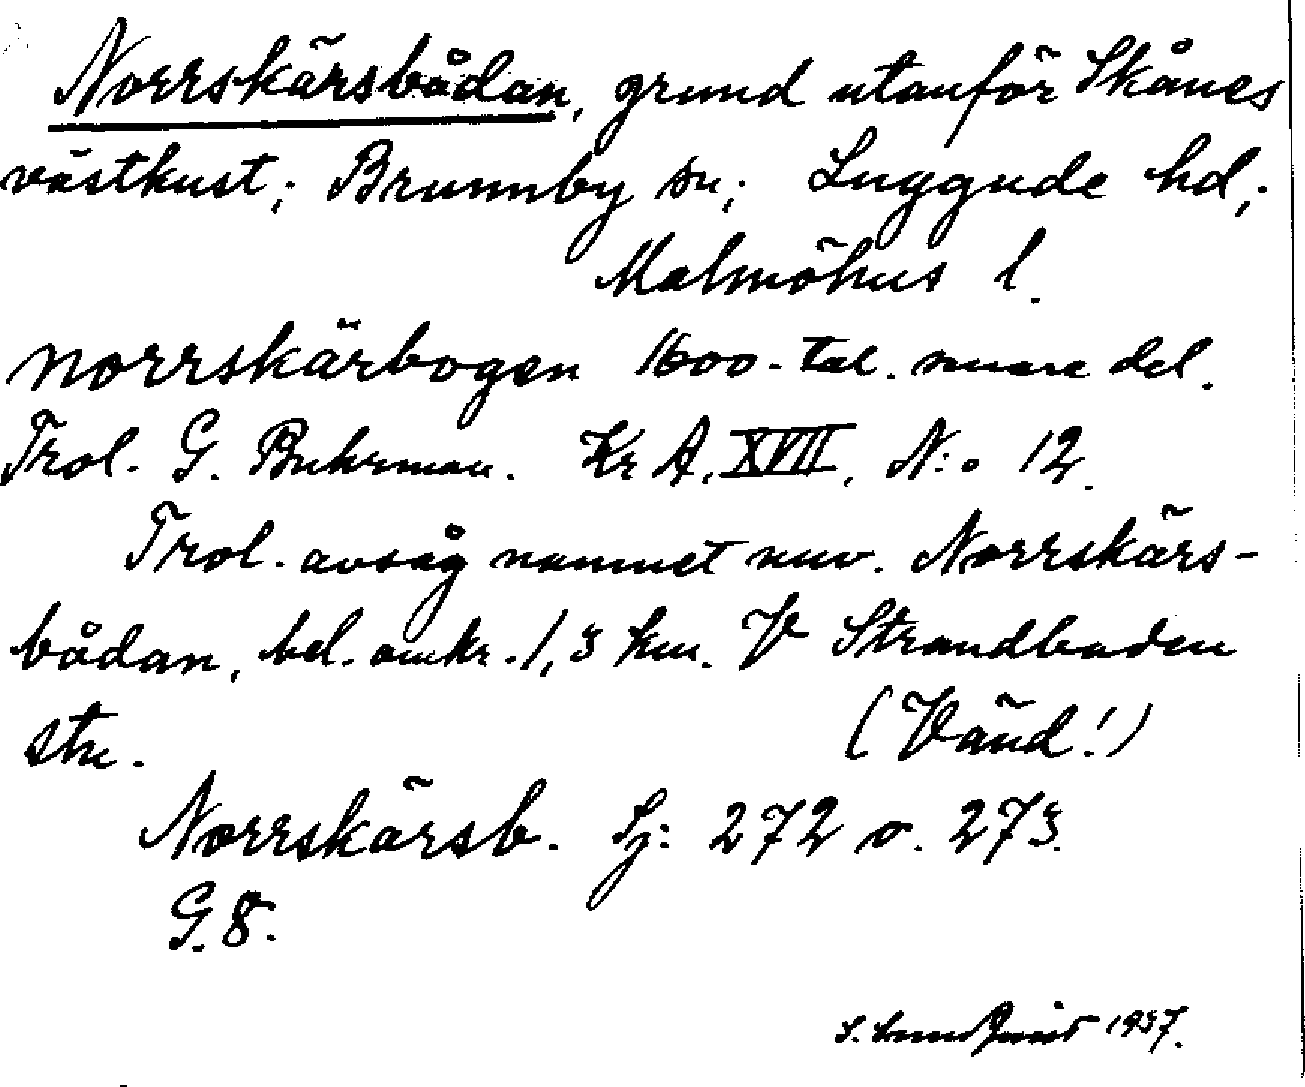 Norrskärsbådan, grund utanför Skånes
västkust; Brunnby sn; Luggude hd;
Malmöhus l.
norrskärbogen 1600-tal. senare del.
Trol. G. Buhrman. Kr A, XVII, N:o 12.
Trol. avsåg namnet nuv. Norrskärs-
bådan, bel. omkr. 1,3 km. V Strandbaden
stn.
(Vänd!)
Norrskärsb. Sj: 272 o. 273.
G. 8.
S. Lundquist 1937.